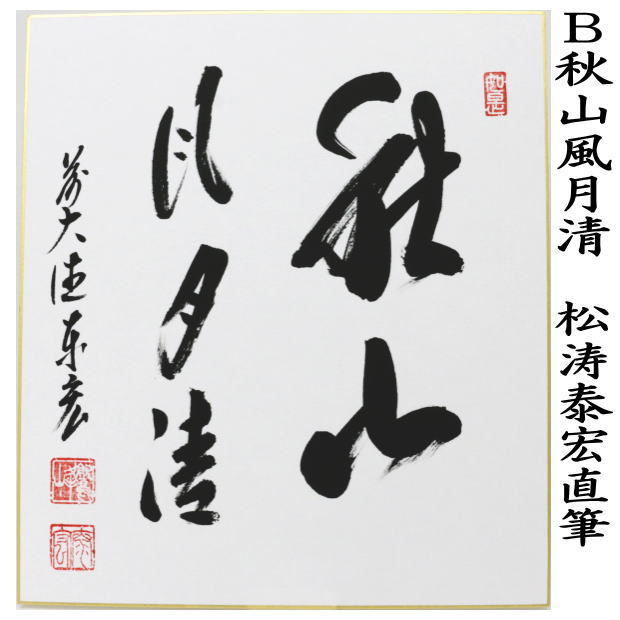 B秋山風月清 松涛泰宏直筆
秋山
風月清
前大徳泰宏
如是